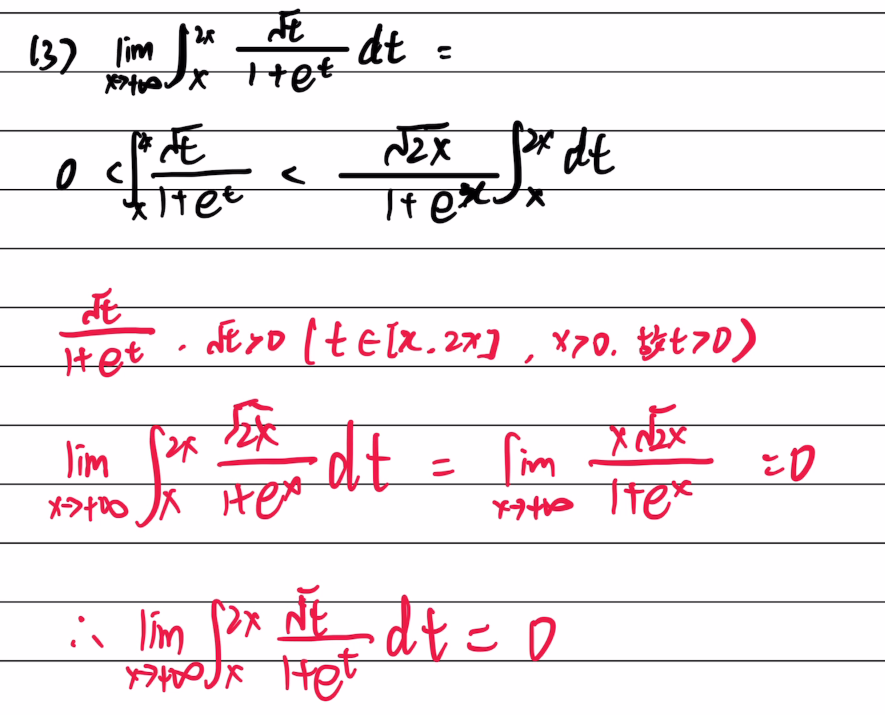 (3) lim x→+∞ ∫_x^{2x} √t/(1+e^t) dt =
0 < ∫_x^{2x} √t/(1+e^t) < √(2x)/(1+e^x) ∫_x^{2x} dt
√t/(1+e^t) . √t>0 (t∈[x.2x] , x>0. 故t>0)
lim x→+∞ ∫_x^{2x} √(2x)/(1+e^x) dt = lim x→+∞ x√(2x)/(1+e^x) =0
∴ lim x→+∞ ∫_x^{2x} √t/(1+e^t) dt = 0